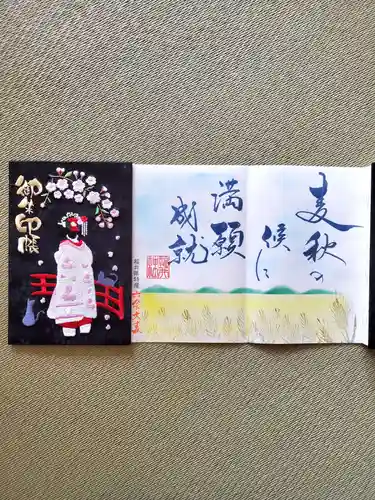 御朱印帳
麦秋の
候に
満願
成就